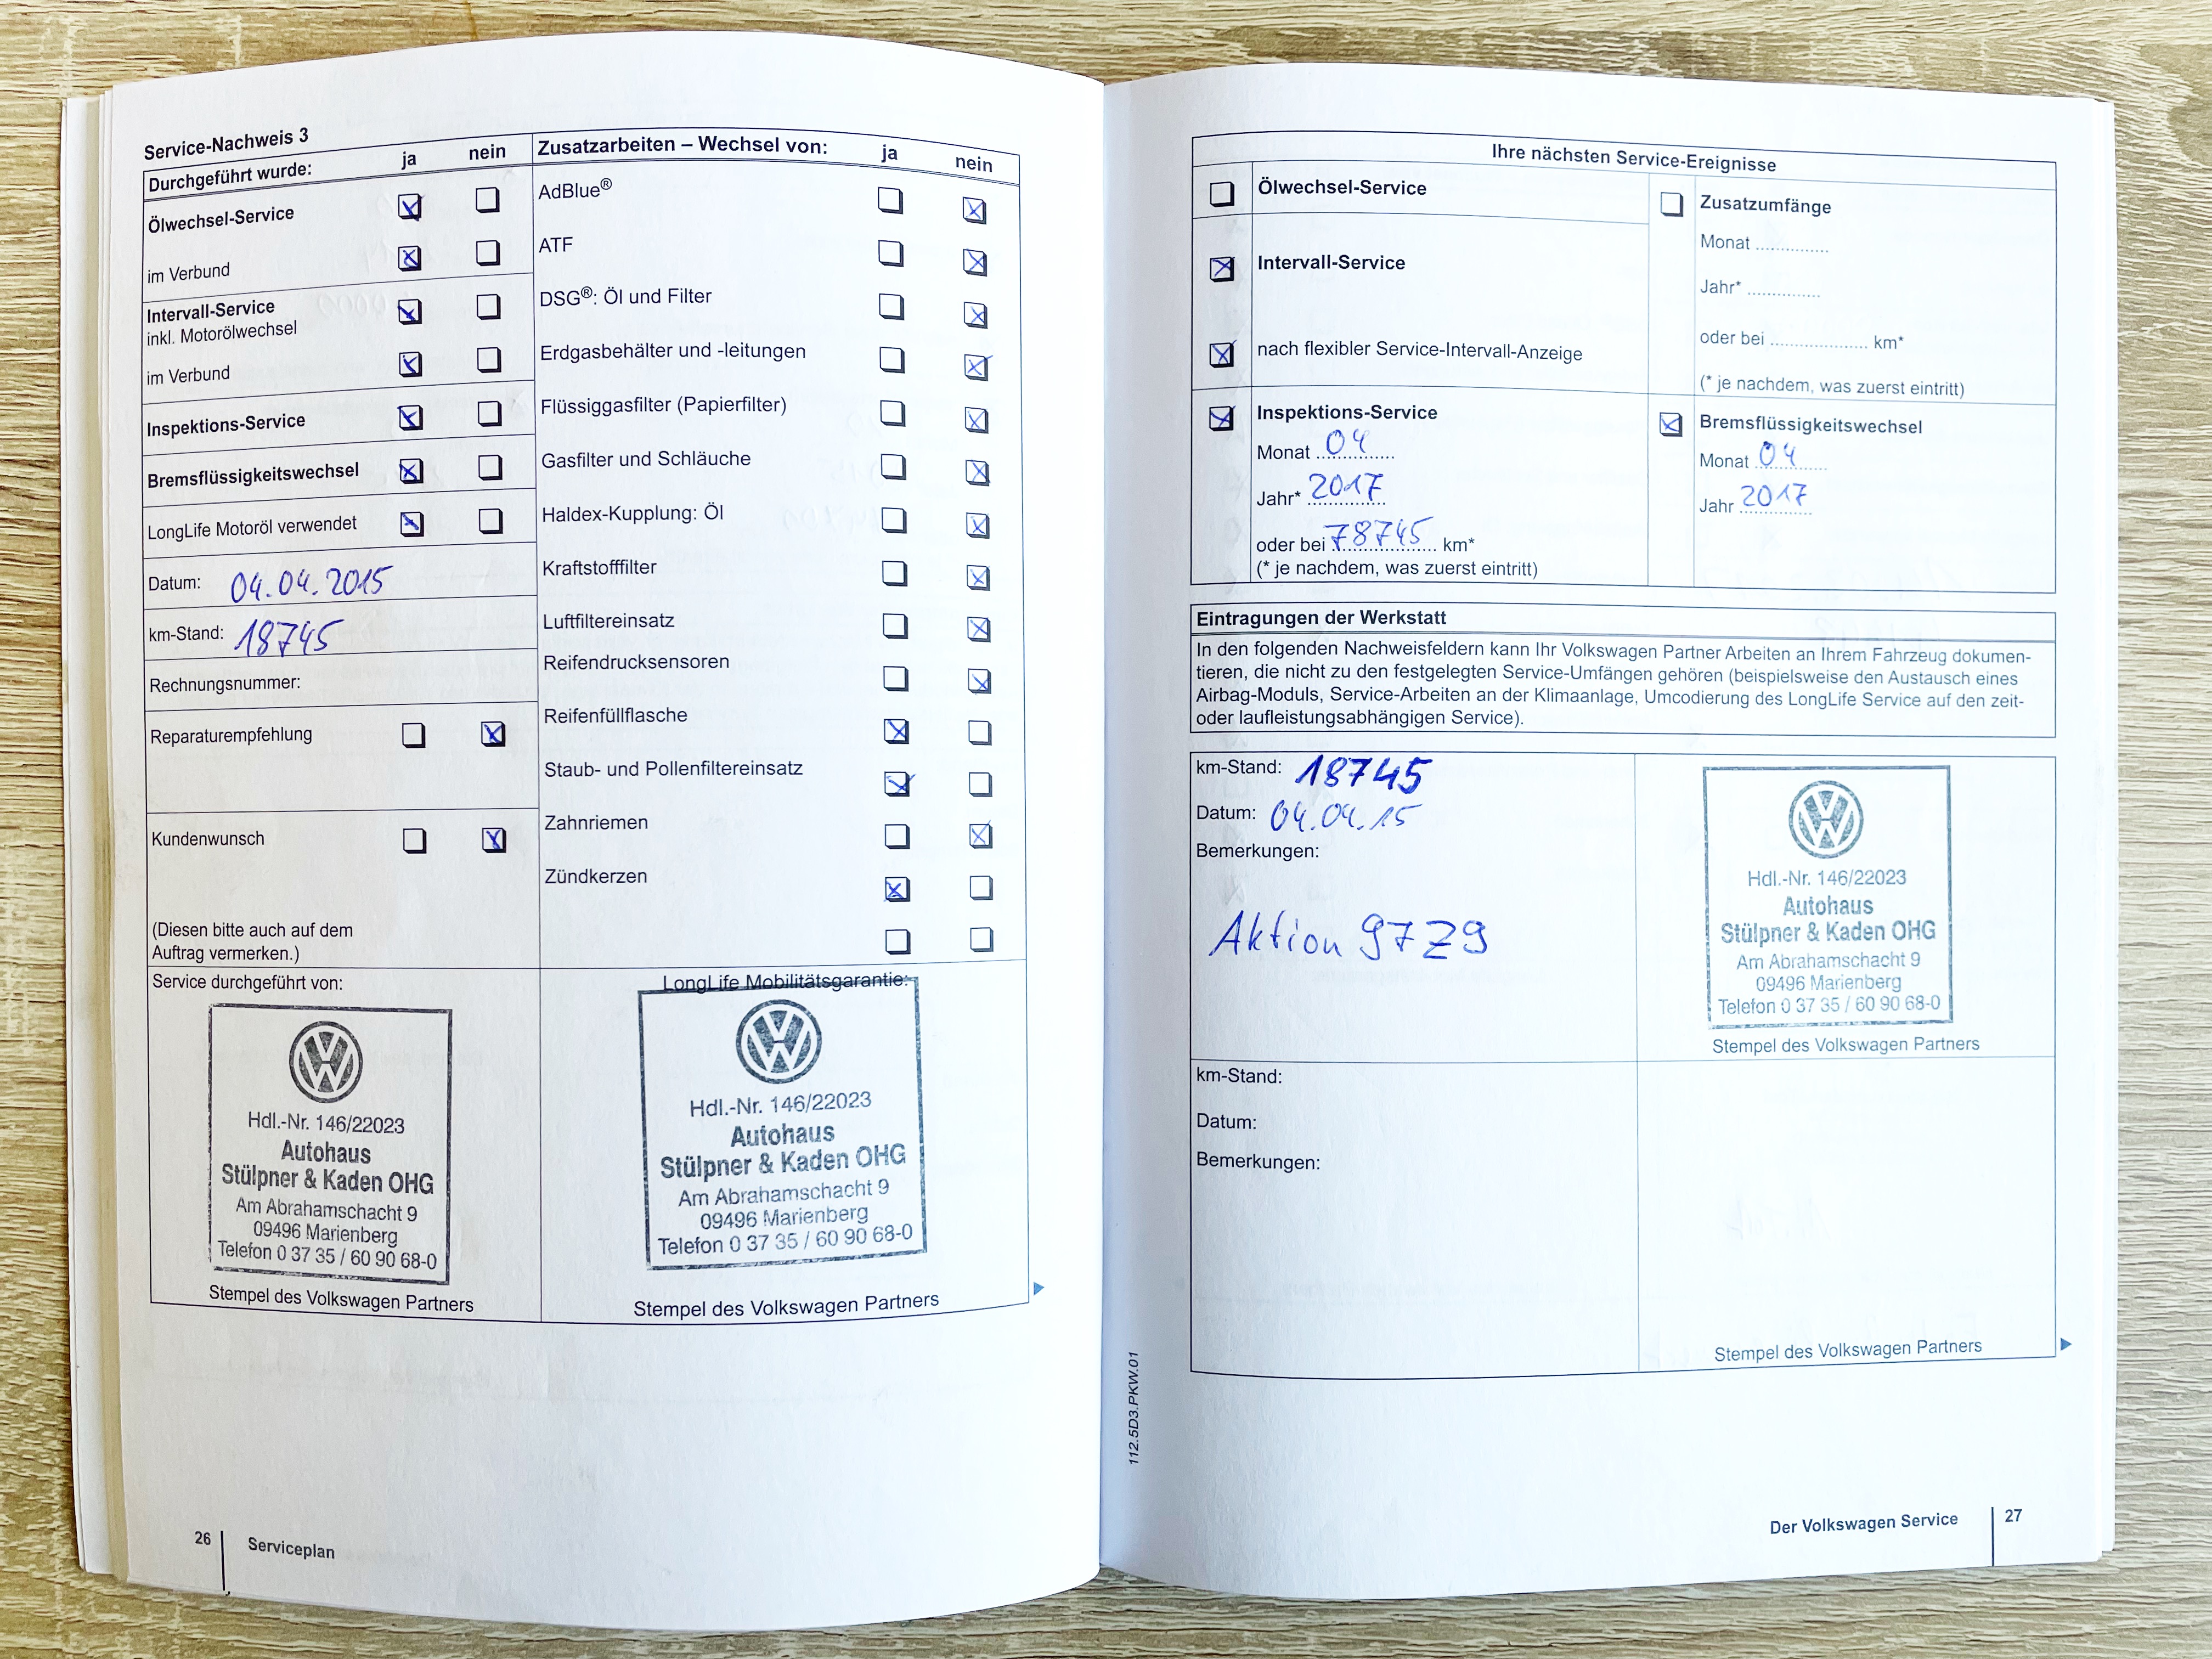 Service-Nachweis 3
Durchgeführt wurde: ja nein
Ölwechsel-Service
im Verbund
Intervall-Service
inkl. Motorölwechsel
im Verbund
Inspektions-Service
Bremsflüssigkeitswechsel
LongLife Motoröl verwendet
Datum: 04.04.2015
km-Stand: 18745
Rechnungsnummer:
Reparaturempfehlung
Kundenwunsch
(Diesen bitte auch auf dem
Auftrag vermerken.)
Zusatzarbeiten – Wechsel von: ja nein
AdBlue®
ATF
DSG®: Öl und Filter
Erdgasbehälter und -leitungen
Flüssiggasfilter (Papierfilter)
Gasfilter und Schläuche
Haldex-Kupplung: Öl
Kraftstofffilter
Luftfiltereinsatz
Reifendrucksensoren
Reifenfüllflasche
Staub- und Pollenfiltereinsatz
Zahnriemen
Zündkerzen
Service durchgeführt von:
Hdl.-Nr. 146/22023
Autohaus
Stülpner & Kaden OHG
Am Abrahamschacht 9
09496 Marienberg
Telefon 0 37 35 / 60 90 68-0
Stempel des Volkswagen Partners
LongLife Mobilitätsgarantie:
Hdl.-Nr. 146/22023
Autohaus
Stülpner & Kaden OHG
Am Abrahamschacht 9
09496 Marienberg
Telefon 0 37 35 / 60 90 68-0
Stempel des Volkswagen Partners
26 Serviceplan
Ihre nächsten Service-Ereignisse
Ölwechsel-Service
Intervall-Service
nach flexibler Service-Intervall-Anzeige
Zusatzumfänge
Monat ..............
Jahr* ..............
oder bei ................... km*
(* je nachdem, was zuerst eintritt)
Inspektions-Service
Monat 04
Jahr* 2017
oder bei 78745 km*
(* je nachdem, was zuerst eintritt)
Bremsflüssigkeitswechsel
Monat 04
Jahr 2017
Eintragungen der Werkstatt
In den folgenden Nachweisfeldern kann Ihr Volkswagen Partner Arbeiten an Ihrem Fahrzeug dokumen-
tieren, die nicht zu den festgelegten Service-Umfängen gehören (beispielsweise den Austausch eines
Airbag-Moduls, Service-Arbeiten an der Klimaanlage, Umcodierung des LongLife Service auf den zeit-
oder laufleistungsabhängigen Service).
km-Stand: 18745
Datum: 04.04.15
Bemerkungen:
Aktion 97Z9
Hdl.-Nr. 146/22023
Autohaus
Stülpner & Kaden OHG
Am Abrahamschacht 9
09496 Marienberg
Telefon 0 37 35 / 60 90 68-0
Stempel des Volkswagen Partners
km-Stand:
Datum:
Bemerkungen:
Stempel des Volkswagen Partners
112.5D3.PKW.01
Der Volkswagen Service 27